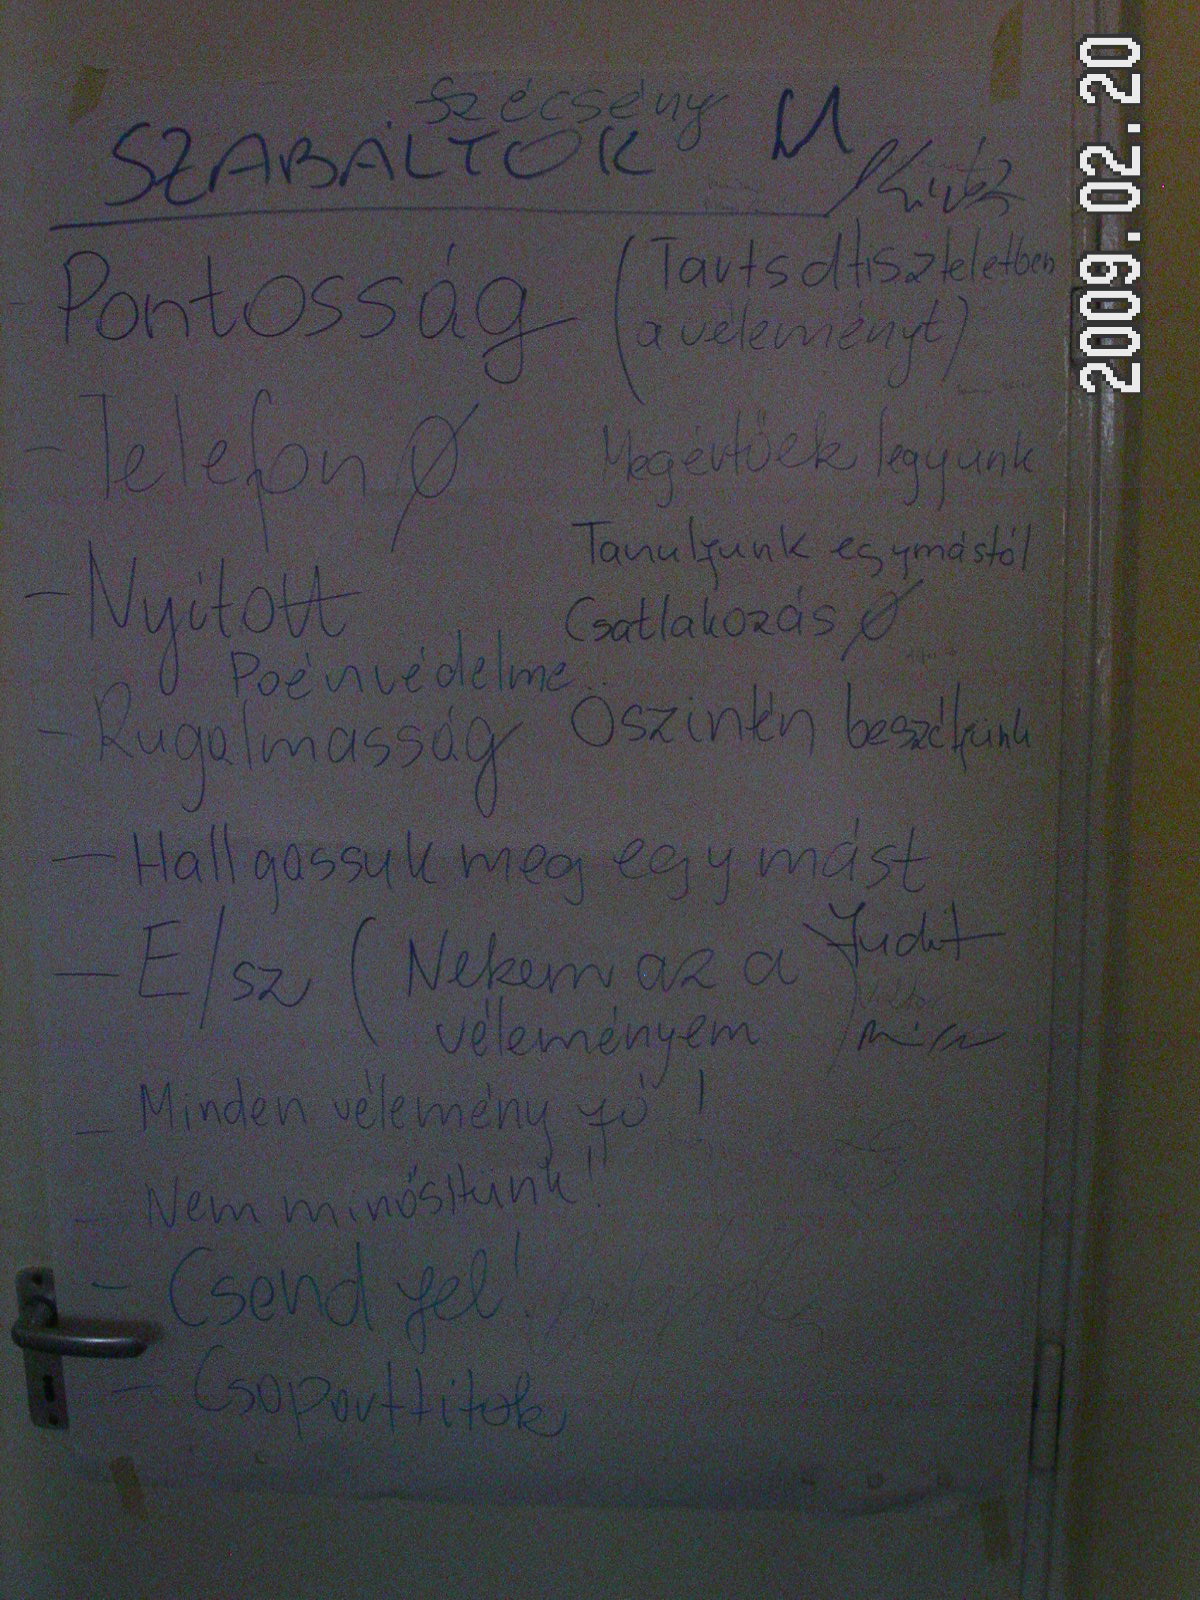 Szécsény
SZABÁLYOK
Pontosság
(Tartsd tiszteletben
a véleményt)
- Telefon Ø
Megértőek legyünk
Tanuljunk egymástól
- Nyitott
Csatlakozás Ø
Poénvédelme
- Rugalmasság
Őszintén beszéljünk
- Hallgassuk meg egymást
- E/sz (Nekem az a
véleményem)
Judit
- Minden vélemény jó!
- Nem minősítünk!
- Csend jel!
- Csoporttitok
2009.02.20